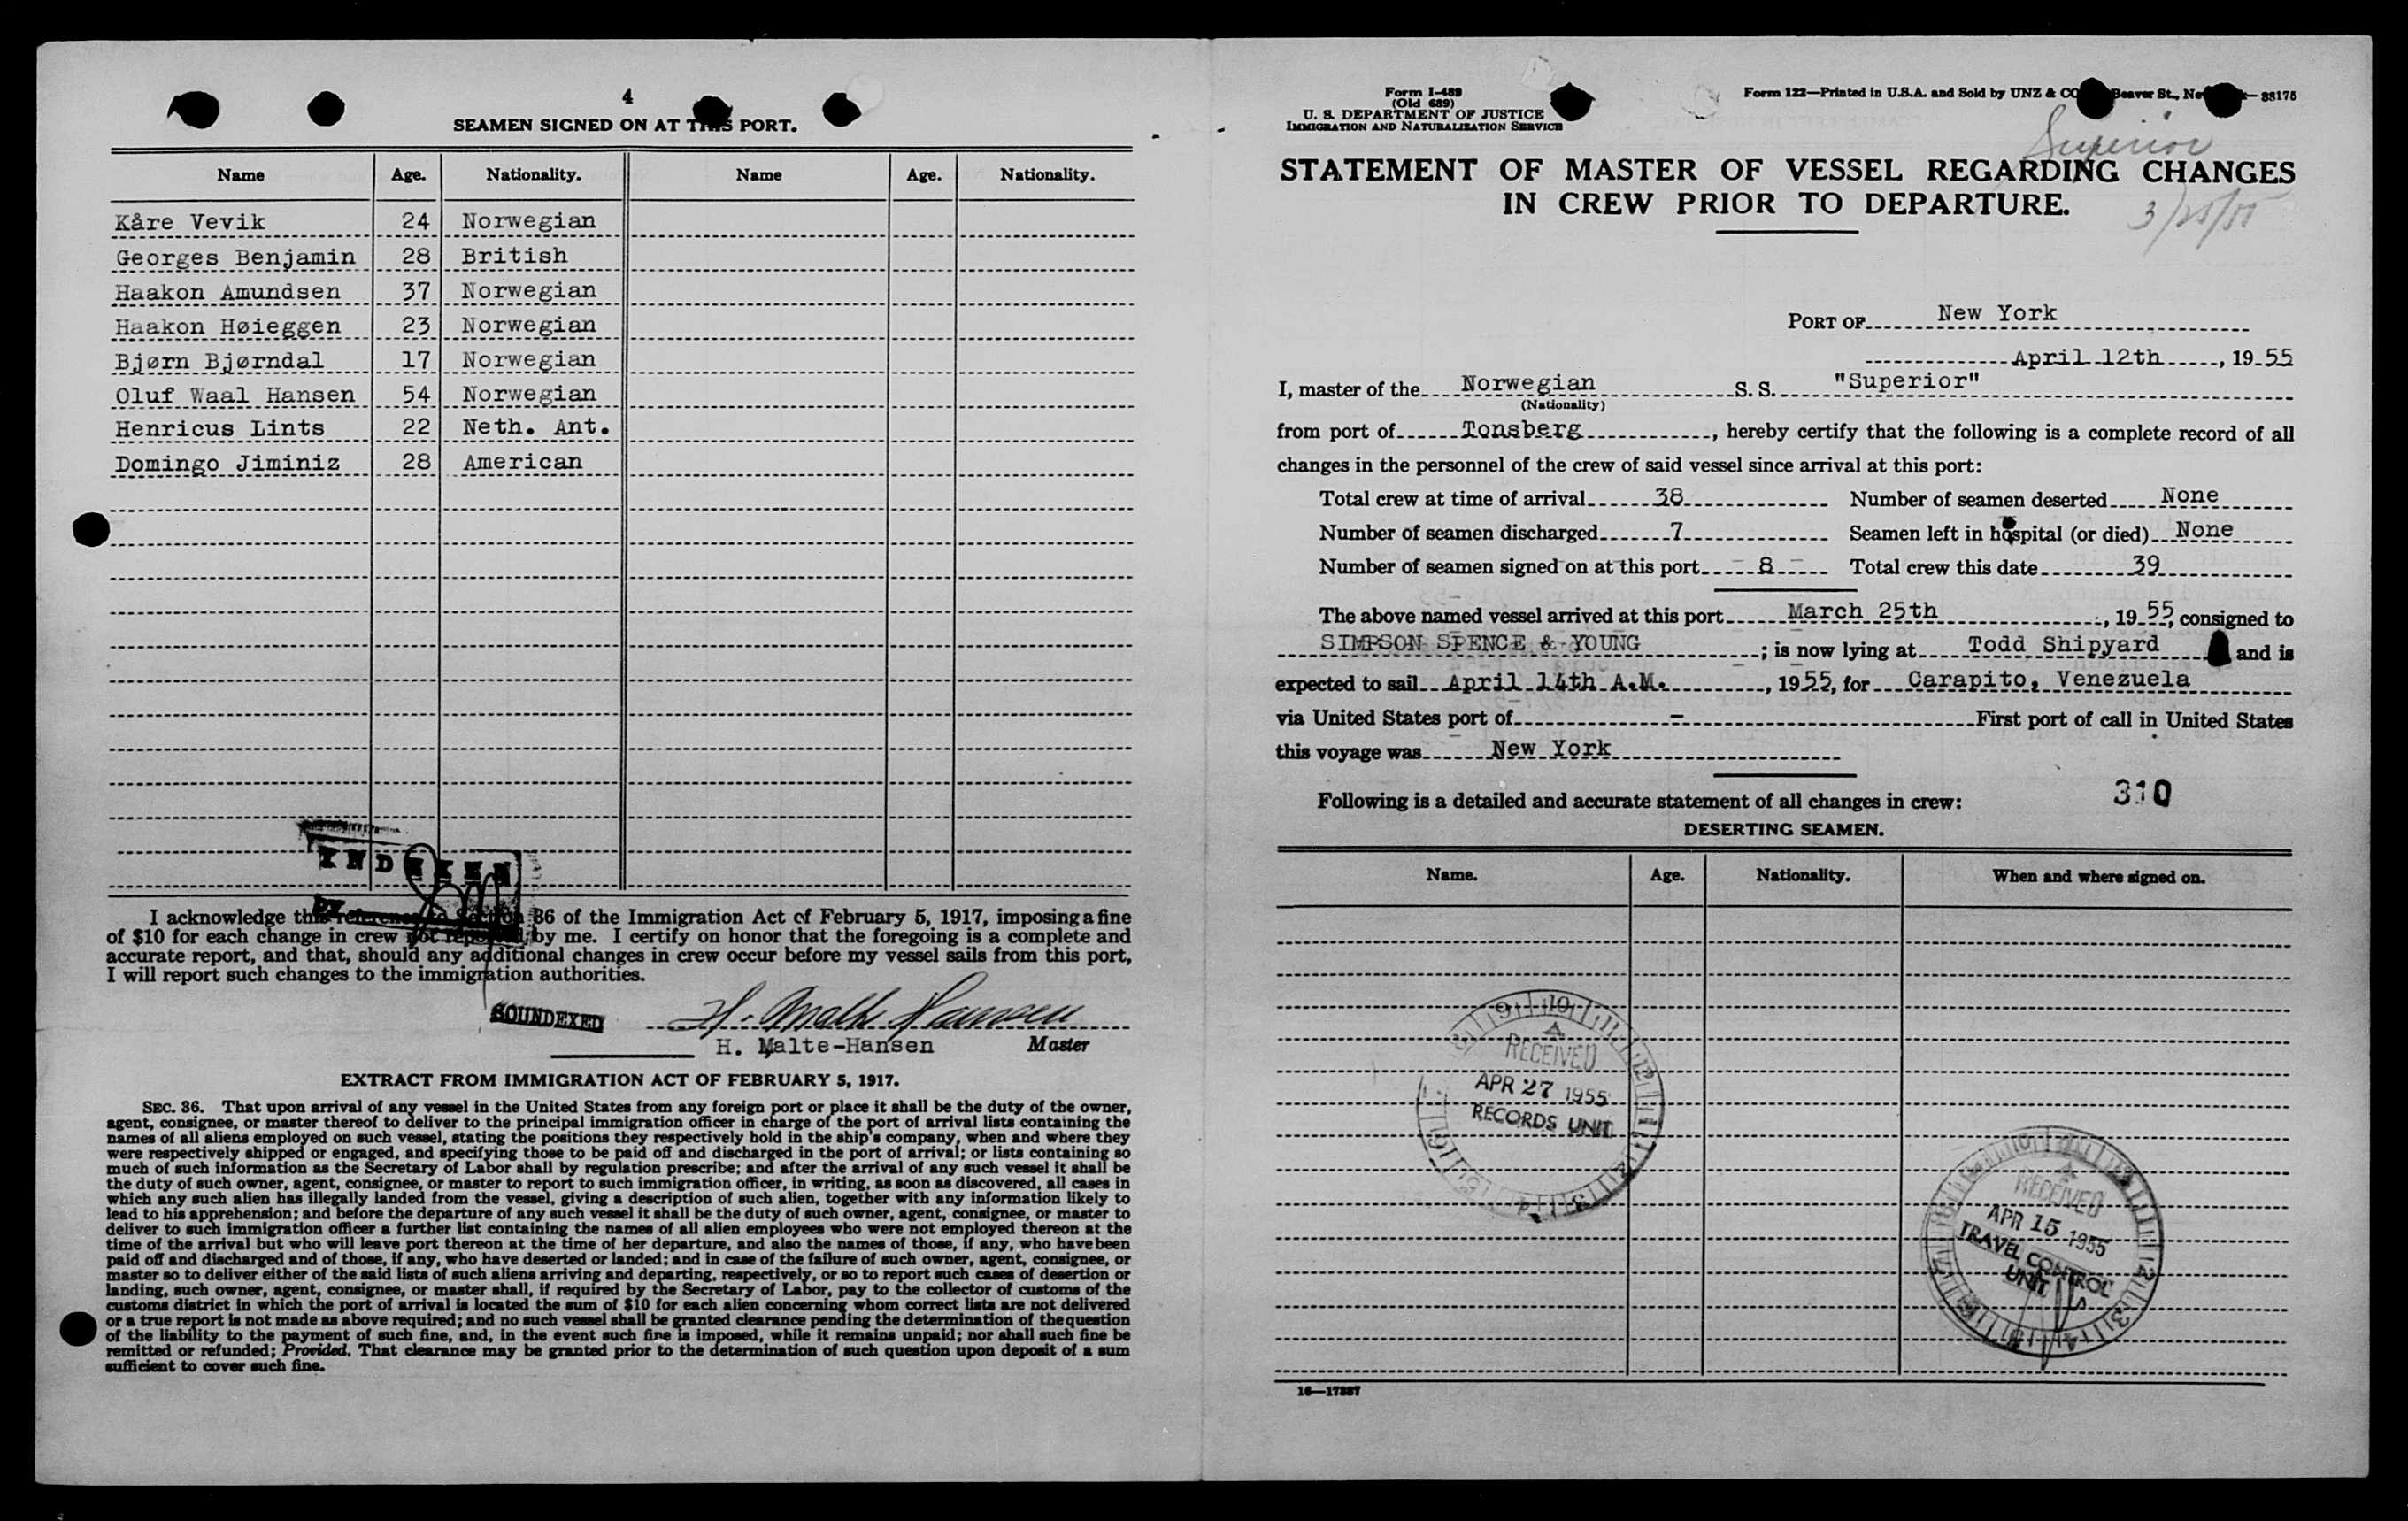 4
SEAMEN SIGNED ON AT THIS PORT.
Name Age. Nationality. Name Age. Nationality.
Kåre Vevik 24 Norwegian
Georges Benjamin 28 British
Haakon Amundsen 37 Norwegian
Haakon Høieggen 23 Norwegian
Bjørn Bjørndal 17 Norwegian
Oluf Waal Hansen 54 Norwegian
Henricus Lints 22 Neth. Ant.
Domingo Jiminiz 28 American
INDEXED
BY
I acknowledge this reference to Section 36 of the Immigration Act of February 5, 1917, imposing a fine
of $10 for each change in crew not reported by me. I certify on honor that the foregoing is a complete and
accurate report, and that, should any additional changes in crew occur before my vessel sails from this port,
I will report such changes to the immigration authorities.
SOUNDEXED H. Malte Hansen
H. Malte-Hansen Master
EXTRACT FROM IMMIGRATION ACT OF FEBRUARY 5, 1917.
SEC. 36. That upon arrival of any vessel in the United States from any foreign port or place it shall be the duty of the owner,
agent, consignee, or master thereof to deliver to the principal immigration officer in charge of the port of arrival lists containing the
names of all aliens employed on such vessel, stating the positions they respectively hold in the ship's company, when and where they
were respectively shipped or engaged, and specifying those to be paid off and discharged in the port of arrival; or lists containing so
much of such information as the Secretary of Labor shall by regulation prescribe; and after the arrival of any such vessel it shall be
the duty of such owner, agent, consignee, or master to report to such immigration officer, in writing, as soon as discovered, all cases in
which any such alien has illegally landed from the vessel, giving a description of such alien, together with any information likely to
lead to his apprehension; and before the departure of any such vessel it shall be the duty of such owner, agent, consignee, or master to
deliver to such immigration officer a further list containing the names of all alien employees who were not employed thereon at the
time of the arrival but who will leave port thereon at the time of her departure, and also the names of those, if any, who have been
paid off and discharged and of those, if any, who have deserted or landed; and in case of the failure of such owner, agent, consignee, or
master so to deliver either of the said lists of such aliens arriving and departing, respectively, or so to report such cases of desertion or
landing, such owner, agent, consignee, or master shall, if required by the Secretary of Labor, pay to the collector of customs of the
customs district in which the port of arrival is located the sum of $10 for each alien concerning whom correct lists are not delivered
or a true report is not made as above required; and no such vessel shall be granted clearance pending the determination of the question
of the liability to the payment of such fine, and, in the event such fine is imposed, while it remains unpaid; nor shall such fine be
remitted or refunded; Provided, That clearance may be granted prior to the determination of such question upon deposit of a sum
sufficient to cover such fine.
Form I-489
(Old 689)
U. S. DEPARTMENT OF JUSTICE
IMMIGRATION AND NATURALIZATION SERVICE
Form 122—Printed in U.S.A. and Sold by UNZ & CO Beaver St., New —38175
Superior
STATEMENT OF MASTER OF VESSEL REGARDING CHANGES
IN CREW PRIOR TO DEPARTURE.
3/25/55
PORT OF New York
April 12th, 1955
I, master of the Norwegian S. S. "Superior"
(Nationality)
from port of Tonsberg, hereby certify that the following is a complete record of all
changes in the personnel of the crew of said vessel since arrival at this port:
Total crew at time of arrival 38 Number of seamen deserted None
Number of seamen discharged 7 Seamen left in hospital (or died) None
Number of seamen signed on at this port - 8 - Total crew this date 39
The above named vessel arrived at this port March 25th, 1955, consigned to
SIMPSON SPENCE & YOUNG; is now lying at Todd Shipyard and is
expected to sail April 14th A.M., 1955, for Carapito, Venezuela
via United States port of - First port of call in United States
this voyage was New York
Following is a detailed and accurate statement of all changes in crew: 310
DESERTING SEAMEN.
Name. Age. Nationality. When and where signed on.
RECEIVED
APR 27 1955
RECORDS UNIT
RECEIVED
APR 15 1955
TRAVEL CONTROL
UNIT
16—17387